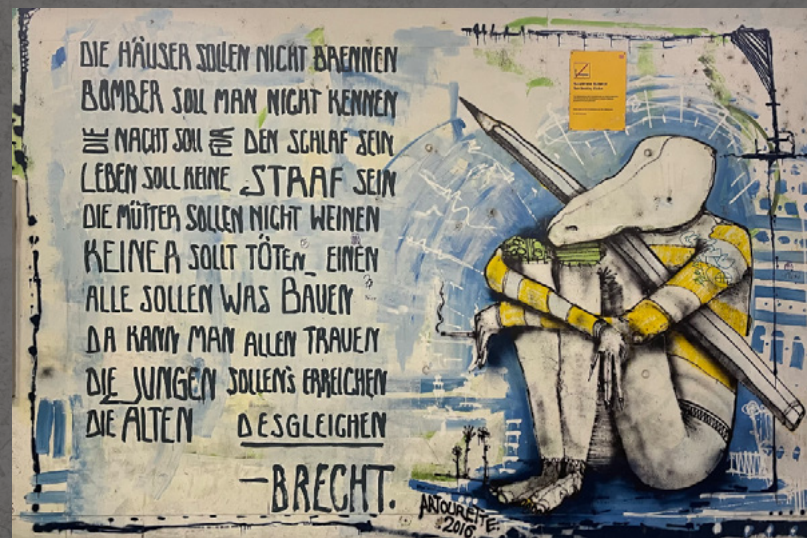 DIE HÄUSER SOLLEN NICHT BRENNEN
BOMBER SOLL MAN NICHT KENNEN
DIE NACHT SOLL FÜR DEN SCHLAF SEIN
LEBEN SOLL KEINE STRAF SEIN
DIE MÜTTER SOLLEN NICHT WEINEN
KEINER SOLLT TÖTEN EINEN
ALLE SOLLEN WAS BAUEN
DA KANN MAN ALLEN TRAUEN
DIE JUNGEN SOLLEN'S ERREICHEN
DIE ALTEN DESGLEICHEN
–BRECHT.
ARTOURETTE.
2016